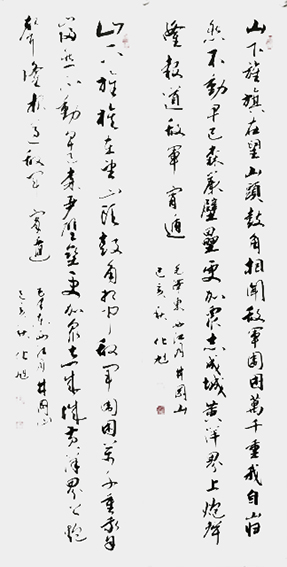 山下旌旗在望山頭鼓角相聞敵軍圍困萬千重我自巋
然不動早已森嚴壁壘更加眾志成城黃洋界上炮聲
隆報道敵軍宵遁
毛澤東西江月井岡山
己亥秋化旭
山下旌旗在望山頭鼓角相聞敵軍圍困萬千重我自
巋然不動早已森嚴壁壘更加眾志成城黃洋界上炮
聲隆報道敵軍宵遁
毛澤東西江月井岡山
己亥秋化旭